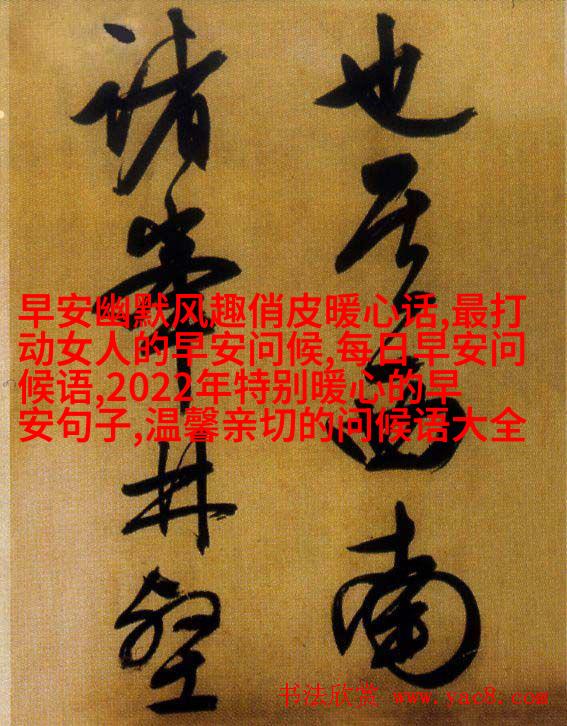 也其西南
諸峯林壑
早安幽默风趣俏皮暖心话,最打
动女人的早安问候,每日早安问
候语,2022年特别暖心的早
安句子,温馨亲切的问候语大全
书法欣赏 www.yac8.com